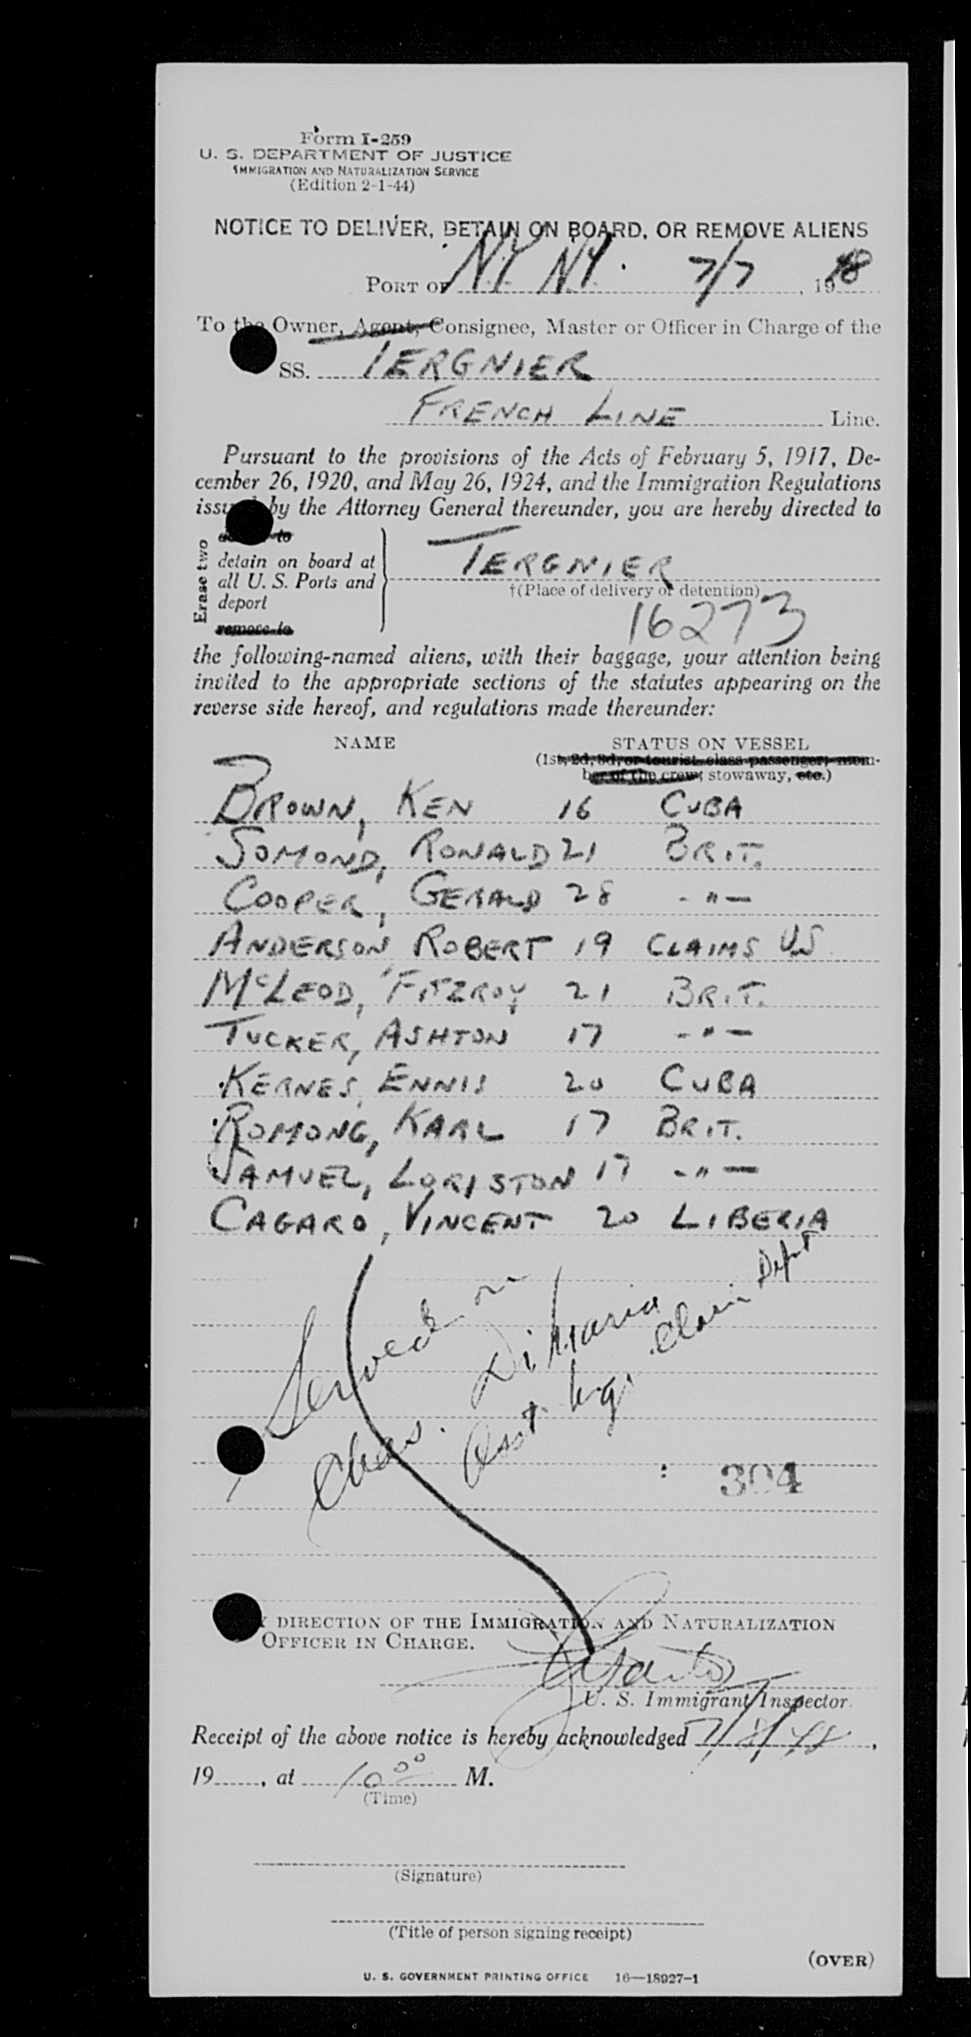 Form I-259
U. S. DEPARTMENT OF JUSTICE
IMMIGRATION AND NATURALIZATION SERVICE
(Edition 2-1-44)
NOTICE TO DELIVER, DETAIN ON BOARD, OR REMOVE ALIENS
PORT OF N.Y. N.Y. 7/7, 1948
To the Owner, Agent, Consignee, Master or Officer in Charge of the
SS. TERGNIER
FRENCH LINE Line.
Pursuant to the provisions of the Acts of February 5, 1917, De-
cember 26, 1920, and May 26, 1924, and the Immigration Regulations
issued by the Attorney General thereunder, you are hereby directed to
Erase two
to
detain on board at
all U. S. Ports and
deport
remove to
TERGNIER
†(Place of delivery or detention)
16273
the following-named aliens, with their baggage, your attention being
invited to the appropriate sections of the statutes appearing on the
reverse side hereof, and regulations made thereunder:
NAME STATUS ON VESSEL
(1st, 2d, 3d, or tourist class passenger, mem-
ber of the crew, stowaway, etc.)
BROWN, KEN 16 CUBA
SOMOND, RONALD 21 BRIT.
COOPER, GERALD 28 - " -
ANDERSON ROBERT 19 CLAIMS US
McLEOD, FITZROY 21 BRIT.
TUCKER, ASHTON 17 - " -
KERNES, ENNIS 20 CUBA
ROMONG, KARL 17 BRIT.
SAMUEL, LORISTON 17 - " -
CAGARO, VINCENT 20 LIBERIA
Served on
Chas. DiMaria
Asst. Mgr. Claim Dept
304
DIRECTION OF THE IMMIGRATION AND NATURALIZATION
OFFICER IN CHARGE.
U. S. Immigrant Inspector.
Receipt of the above notice is hereby acknowledged 7/7/48,
19, at 10 00 M.
(Time)
(Signature)
(Title of person signing receipt)
(OVER)
U. S. GOVERNMENT PRINTING OFFICE 16—18927-1